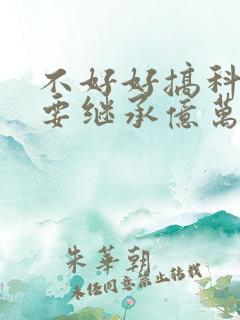 不好好搞科
要继承億萬
朱華朝
未任同意禁止转载